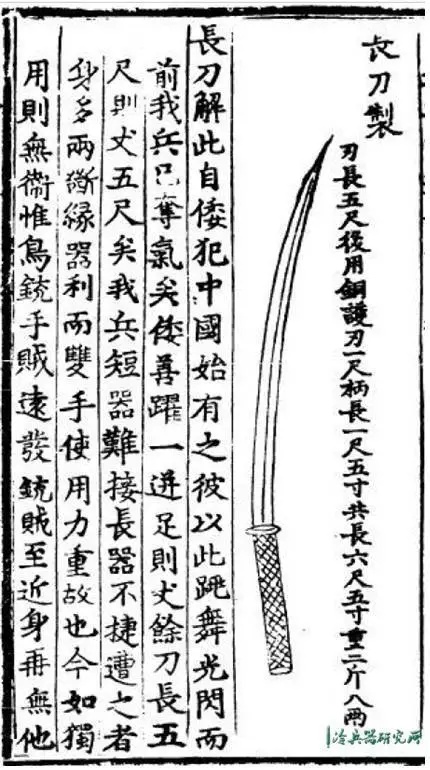 长刀製
刃長五尺後用銅護刃一尺柄長一尺五寸共長六尺五寸重二斤八兩
長刀解此自倭犯中國始有之彼以此跳舞光閃而
前我兵已奪氣矣倭善躍一迸足則丈餘刀長五
尺則丈五尺矣我兵短器難接長器不捷遭之者
身多兩斷緣器利而雙手使用力重故也今如獨
用則無衛惟鳥銃手賊遠發銃賊至近身再無他
冷兵器研究所